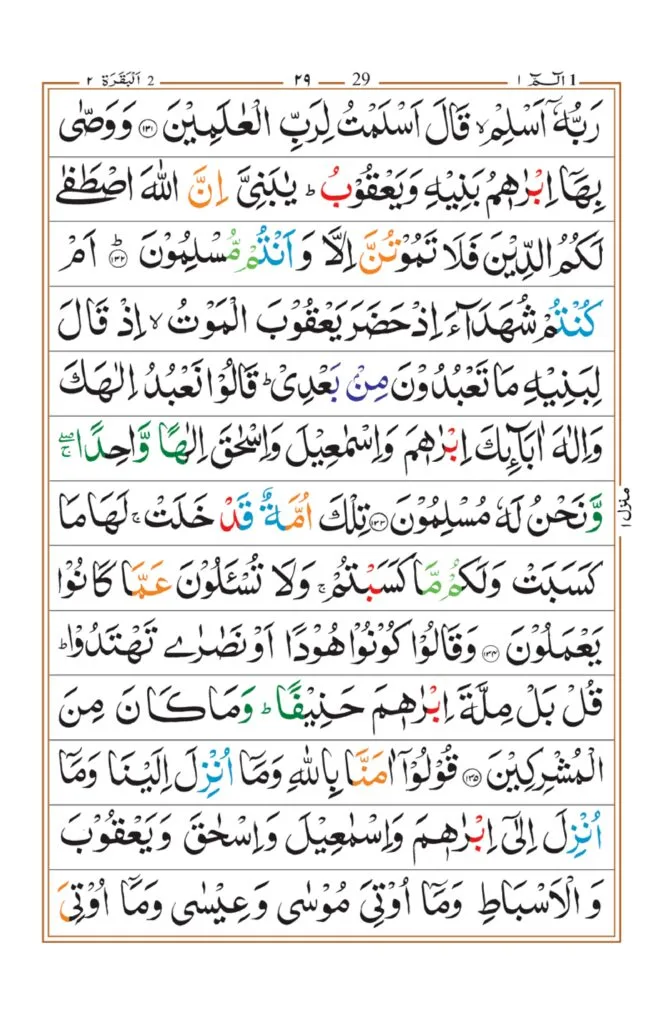 1 الٓـمّٓ ١ 29 ٢٩ 2 اَلْبَقَرَة ٢
رَبُّهٗۤ اَسْلِمْ ۙ قَالَ اَسْلَمْتُ لِرَبِّ الْعٰلَمِيْنَ ﴿۱۳۱﴾ وَوَصّٰى
بِهَاۤ اِبْرٰهٖمُ بَنِيْهِ وَيَعْقُوْبُ ؕ يٰبَنِىَّ اِنَّ اللّٰهَ اصْطَفٰى
لَكُمُ الدِّيْنَ فَلَا تَمُوْتُنَّ اِلَّا وَاَنْتُمْ مُّسْلِمُوْنَ ؕ ﴿۱۳۲﴾ اَمْ
كُنْتُمْ شُهَدَآءَ اِذْ حَضَرَ يَعْقُوْبَ الْمَوْتُ ۙ اِذْ قَالَ
لِبَنِيْهِ مَا تَعْبُدُوْنَ مِنْۢ بَعْدِىْ ؕ قَالُوْا نَعْبُدُ اِلٰهَكَ
وَاِلٰهَ اٰبَآئِكَ اِبْرٰهٖمَ وَاِسْمٰعِيْلَ وَاِسْحٰقَ اِلٰهًا وَّاحِدًا ۖۚ
وَّنَحْنُ لَهٗ مُسْلِمُوْنَ ﴿۱۳۳﴾ تِلْكَ اُمَّةٌ قَدْ خَلَتْ ۚ لَهَا مَا
كَسَبَتْ وَلَكُمْ مَّا كَسَبْتُمْ ۚ وَلَا تُسْئَلُوْنَ عَمَّا كَانُوْا
يَعْمَلُوْنَ ﴿۱۳۴﴾ وَقَالُوْا كُوْنُوْا هُوْدًا اَوْ نَصٰرٰى تَهْتَدُوْا ؕ
قُلْ بَلْ مِلَّةَ اِبْرٰهٖمَ حَنِيْفًا ؕ وَمَا كَانَ مِنَ
الْمُشْرِكِيْنَ ﴿۱۳۵﴾ قُوْلُوْۤا اٰمَنَّا بِاللّٰهِ وَمَاۤ اُنْزِلَ اِلَيْنَا وَمَاۤ
اُنْزِلَ اِلٰٓى اِبْرٰهٖمَ وَاِسْمٰعِيْلَ وَاِسْحٰقَ وَيَعْقُوْبَ
وَالْاَسْبَاطِ وَمَاۤ اُوْتِىَ مُوْسٰى وَعِيْسٰى وَمَاۤ اُوْتِىَ
منزل ١